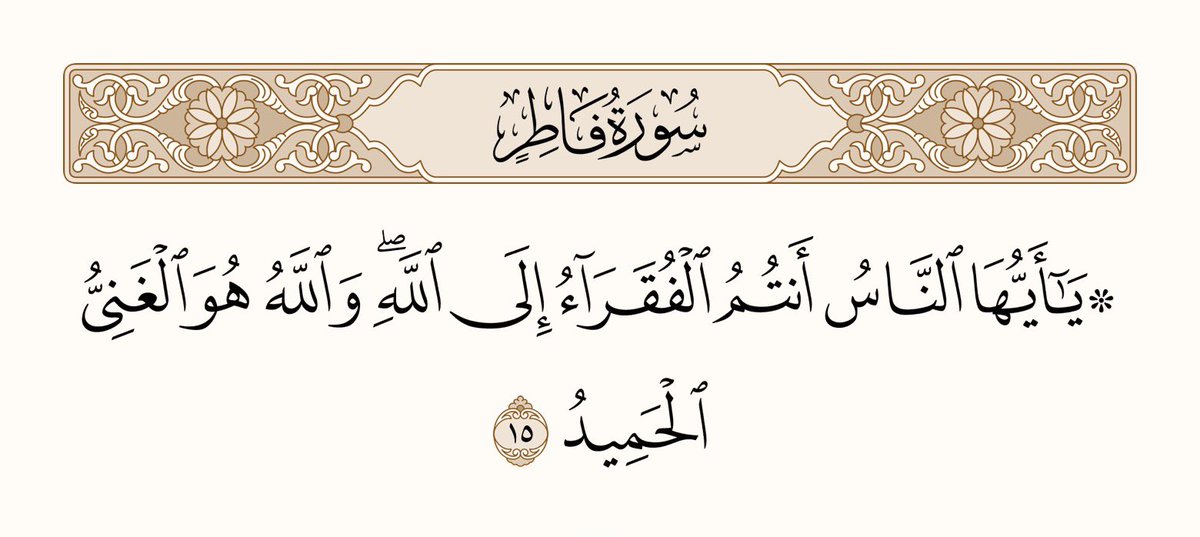 سُورَةُ فَاطِرٍ
۞ يَـٰٓأَيُّهَا ٱلنَّاسُ أَنتُمُ ٱلْفُقَرَآءُ إِلَى ٱللَّهِ ۖ وَٱللَّهُ هُوَ ٱلْغَنِىُّ
ٱلْحَمِيدُ ١٥